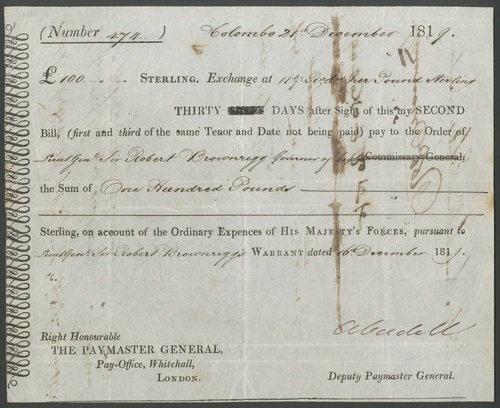 (Number 474 ) Colombo 21st December 1819.
£ 100 STERLING. Exchange at per Pound Sterling
THIRTY DAYS after Sight of this my SECOND
Bill, (first and third of the same Tenor and Date not being paid) pay to the Order of
Lieut Genl Sir Robert Brownrigg Governor of Commissary General,
the Sum of One Hundred Pounds
Sterling, on account of the Ordinary Expences of HIS MAJESTY'S FORCES, pursuant to
Lieut Genl Sir Robert Brownrigg's WARRANT dated 16th December 1819.
Right Honourable
THE PAYMASTER GENERAL,
Pay-Office, Whitehall,
LONDON.
Deputy Paymaster General.